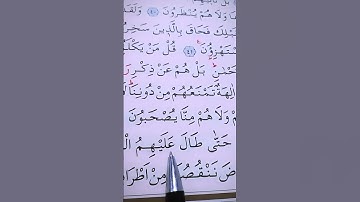 وَلَا هُمْ يُنْظَرُونَ ﴿٤٠﴾ وَلَقَدِ
فَحَاقَ بِالَّذِينَ سَخِرُ
يَسْتَهْزِؤُنَ ﴿٤١﴾ قُلْ مَنْ يَكْلَؤُ
حْمٰنِ بَلْ هُمْ عَنْ ذِكْرِ رَ
اٰلِهَةٌ تَمْنَعُهُمْ مِنْ دُونِنَا
وَلَا هُمْ مِنَّا يُصْحَبُونَ
حَتّٰى طَالَ عَلَيْهِمُ الْ
ضَ نَنْقُصُهَا مِنْ اَطْرَا